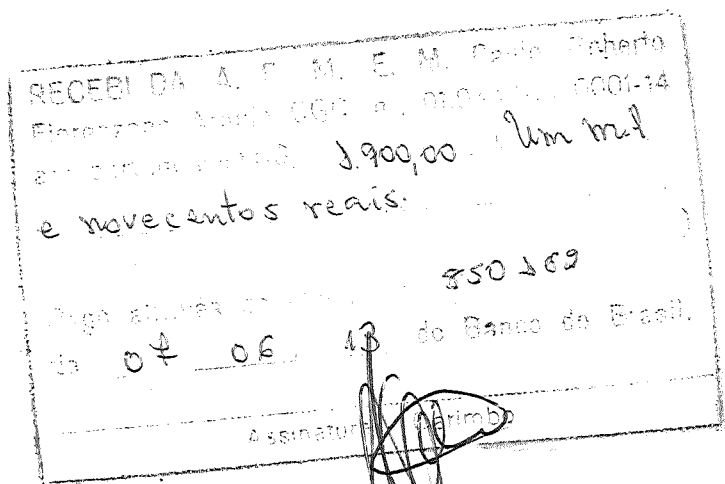 RECEBI DA A. P. M. E. M. Paulo Roberto
CGC 0001-14
1.900,00 Um mil
e novecentos reais.
850169
Pago através
de 07 06 13 do Banco do Brasil.
Assinatura Carimbo